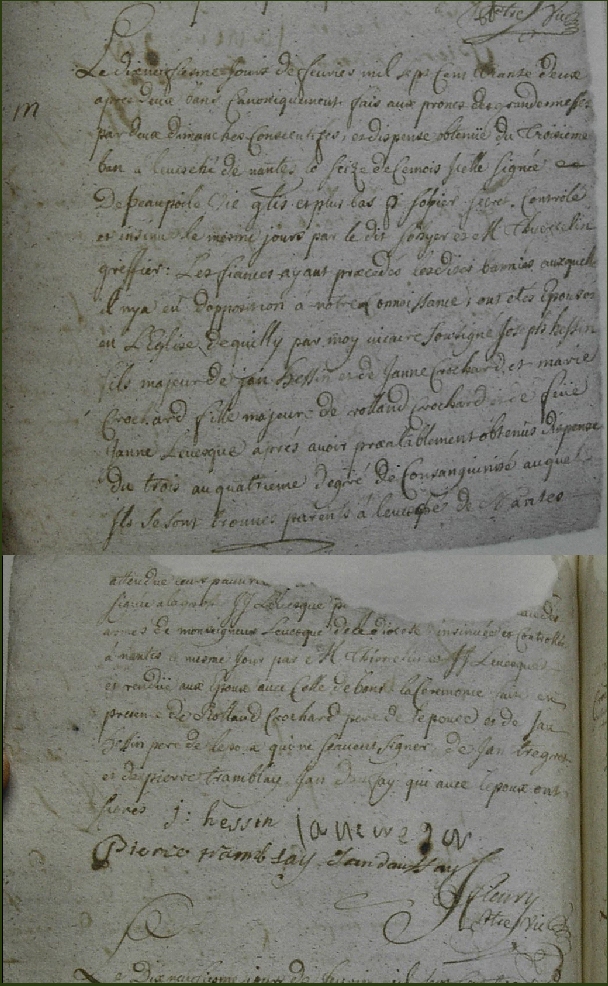 ptre Vic
m
Le dixneufiesme jours de fevrier mil sept cent trante deux
apres deux bans Canoniquement fais aux prones des grandes messes
par deux dimanches Consecutifs, et dispense obtenüe du troisieme
ban a leveché de nantes le seize de Cemois icelle signée
De beaupoile vic glis et plus bas secret. Controllé
et insinué le meme jours par le dit et M
greffier: Les fiances ayant procedés auxquels
il nya eu Dopposition a notre Connoissance; ont etes Epouses
en L'Eglise dequilly par moy vicaire soussigné Joseph hessin
fils majeur de jan hessin et de Janne Crochard, et marie
Crochard fille majeure de rolland Crochard et de fuüe
Janne Levesque aprés avoir prealablement obtenus dispense
du trois au quatrieme degré de Consanguinité auquel
Ils se sont trouvés parents a leveché de Nantes
attendue leur pauvre
signée Levesque
armes de monseigneur Levesque de ce diocese insinuée et Controllée
a nantes le mesme Jour par M Levesque
et rendüe aux Epoux avec Celle de bans, la Ceremonie faite en
presence de Rolland Crochard pere de lepouse et de Jan
hessin pere de lepoux qui ne scavent signer, de Jan tregret
et de pierre tramblay Jan daussay qui avec lepoux ont
signés j: hessin
Pierre tramblay Jan daussay
Fleury
ptre Vic
Le Dixneufiesme jours de fevrier mil sept cent